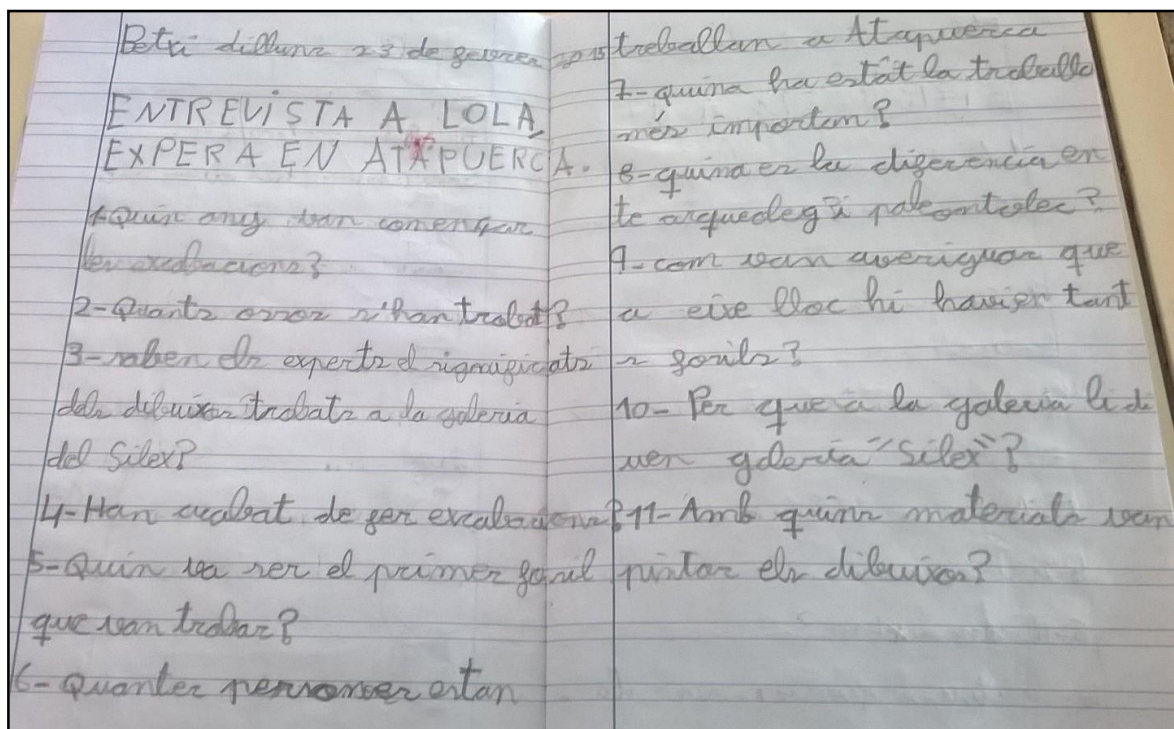 Petri dillunz 23 de febrer 2015
ENTREVISTA A LOLA,
EXPERA EN ATAPUERCA.
1-Quin any van començar
les excabacions?
2-Quants ossos s'han trobat?
3-saben els experts el significats
dels dibuixos trobats a la galeria
del Silex?
4-Han acabat de fer excabacions?
5-Quin va ser el primer fosil
que van trobar?
6-Quantes persones estan
treballan a Atapuerca
7-quina ha estat la troballa
més importan?
8-quina es la diferencia en
te arqueoleg i paleontolec?
9-com van averiguar que
a eixe lloc hi havien tant
s fosils?
10-Per que a la galeria li di
uen galeria "Silex"?
11-Amb quins materials van
pintar els dibuixos?